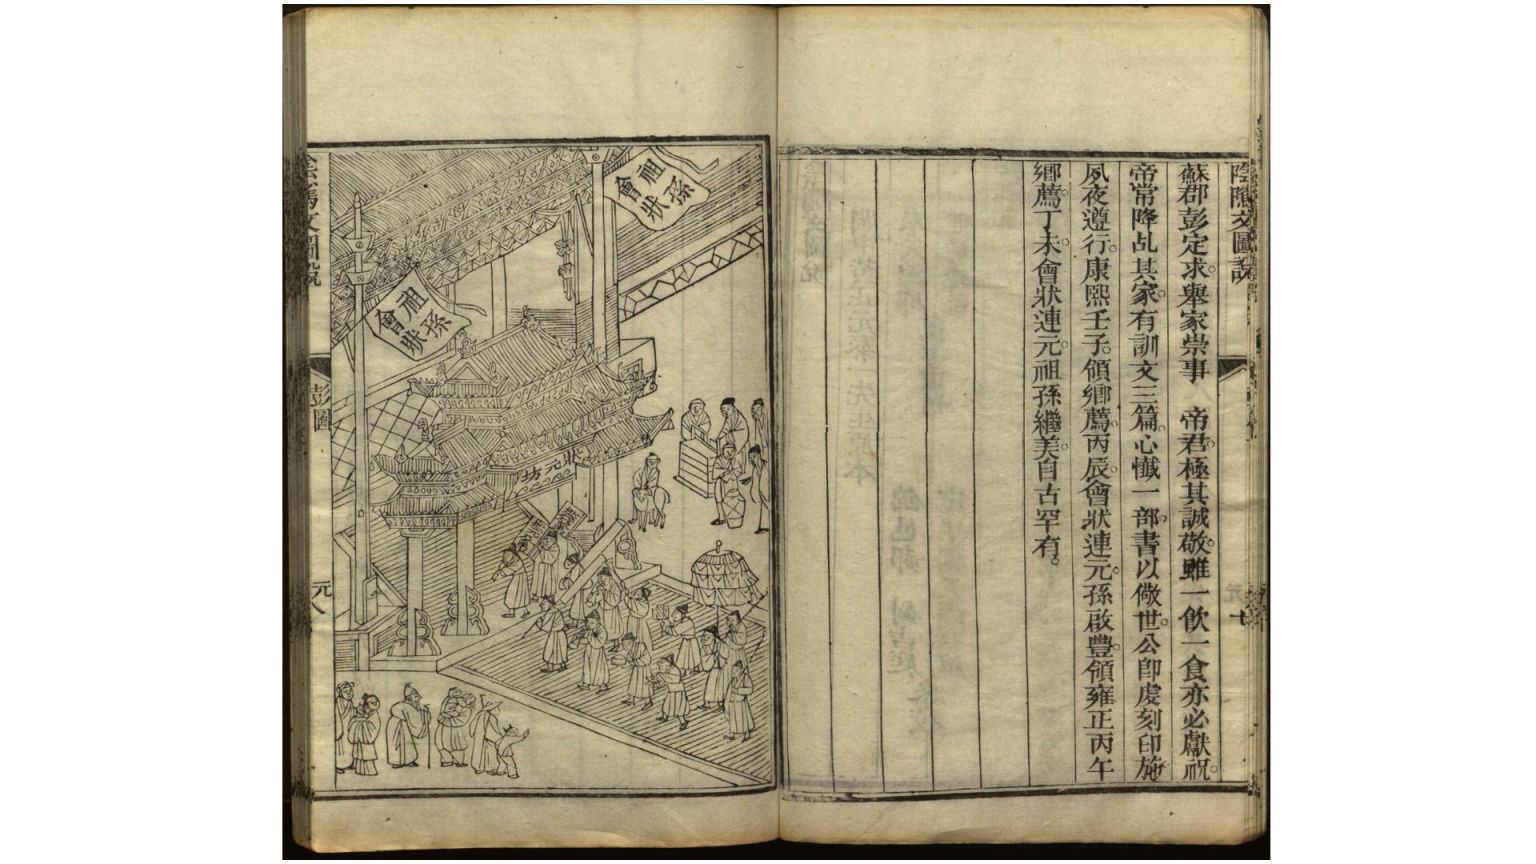 陰隲文圖說
元七
蘇郡彭定求。舉家崇事　帝君。極其誠敬。雖一飲一食。亦必獻祝。
帝常降乩其家。有訓文三篇。心懺一部。書以儆世。公卽虔刻印施。
夙夜遵行。康熙壬子。領鄉薦。丙辰。會狀連元。孫啟豐。領雍正丙午
鄉薦。丁未。會狀連元。祖孫繼美。自古罕有。
祖孫
會狀
祖孫
會狀
狀元坊
陰騭文圖說
彭圖
元八